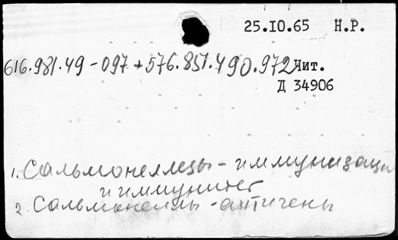 25.IO.65 Н.Р.
616.981.49-097+576.851.490.972 Чит.
Д 34906
1. Сальмонеллезы - иммунизаци
и иммунитет
2. Сальмонеллы - антигены